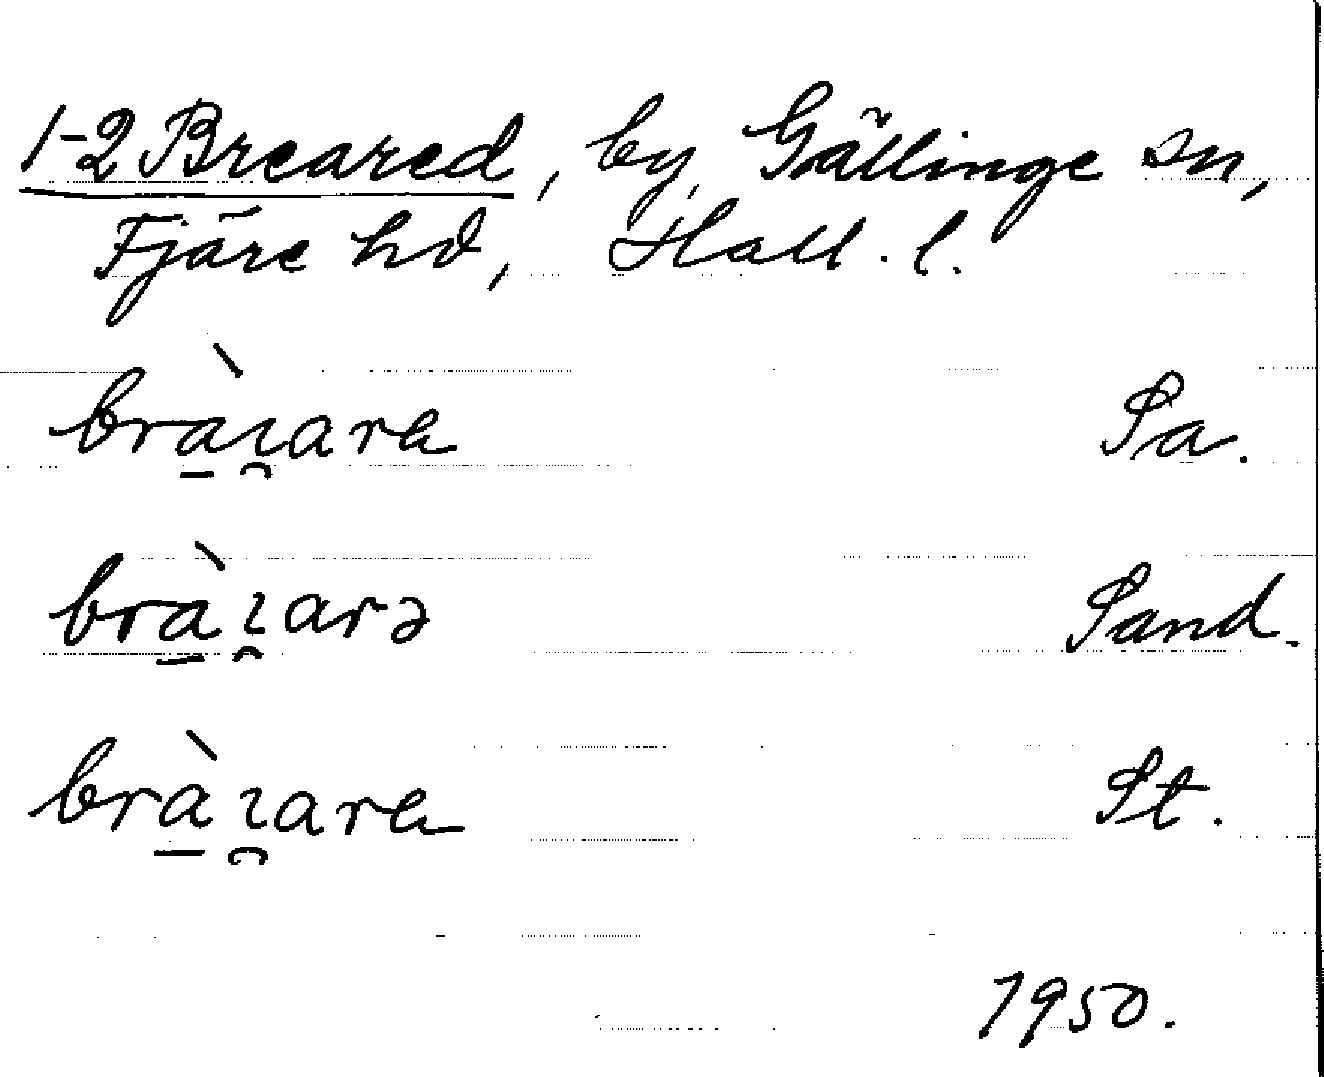 1-2 Breared, by, Gällinge sn,
Fjäre hd, Hall. l.
brà̱ɿ̯ara Sa.
brà̱ɿ̯arə Sand.
brà̱ɿ̯ara St.
1950.